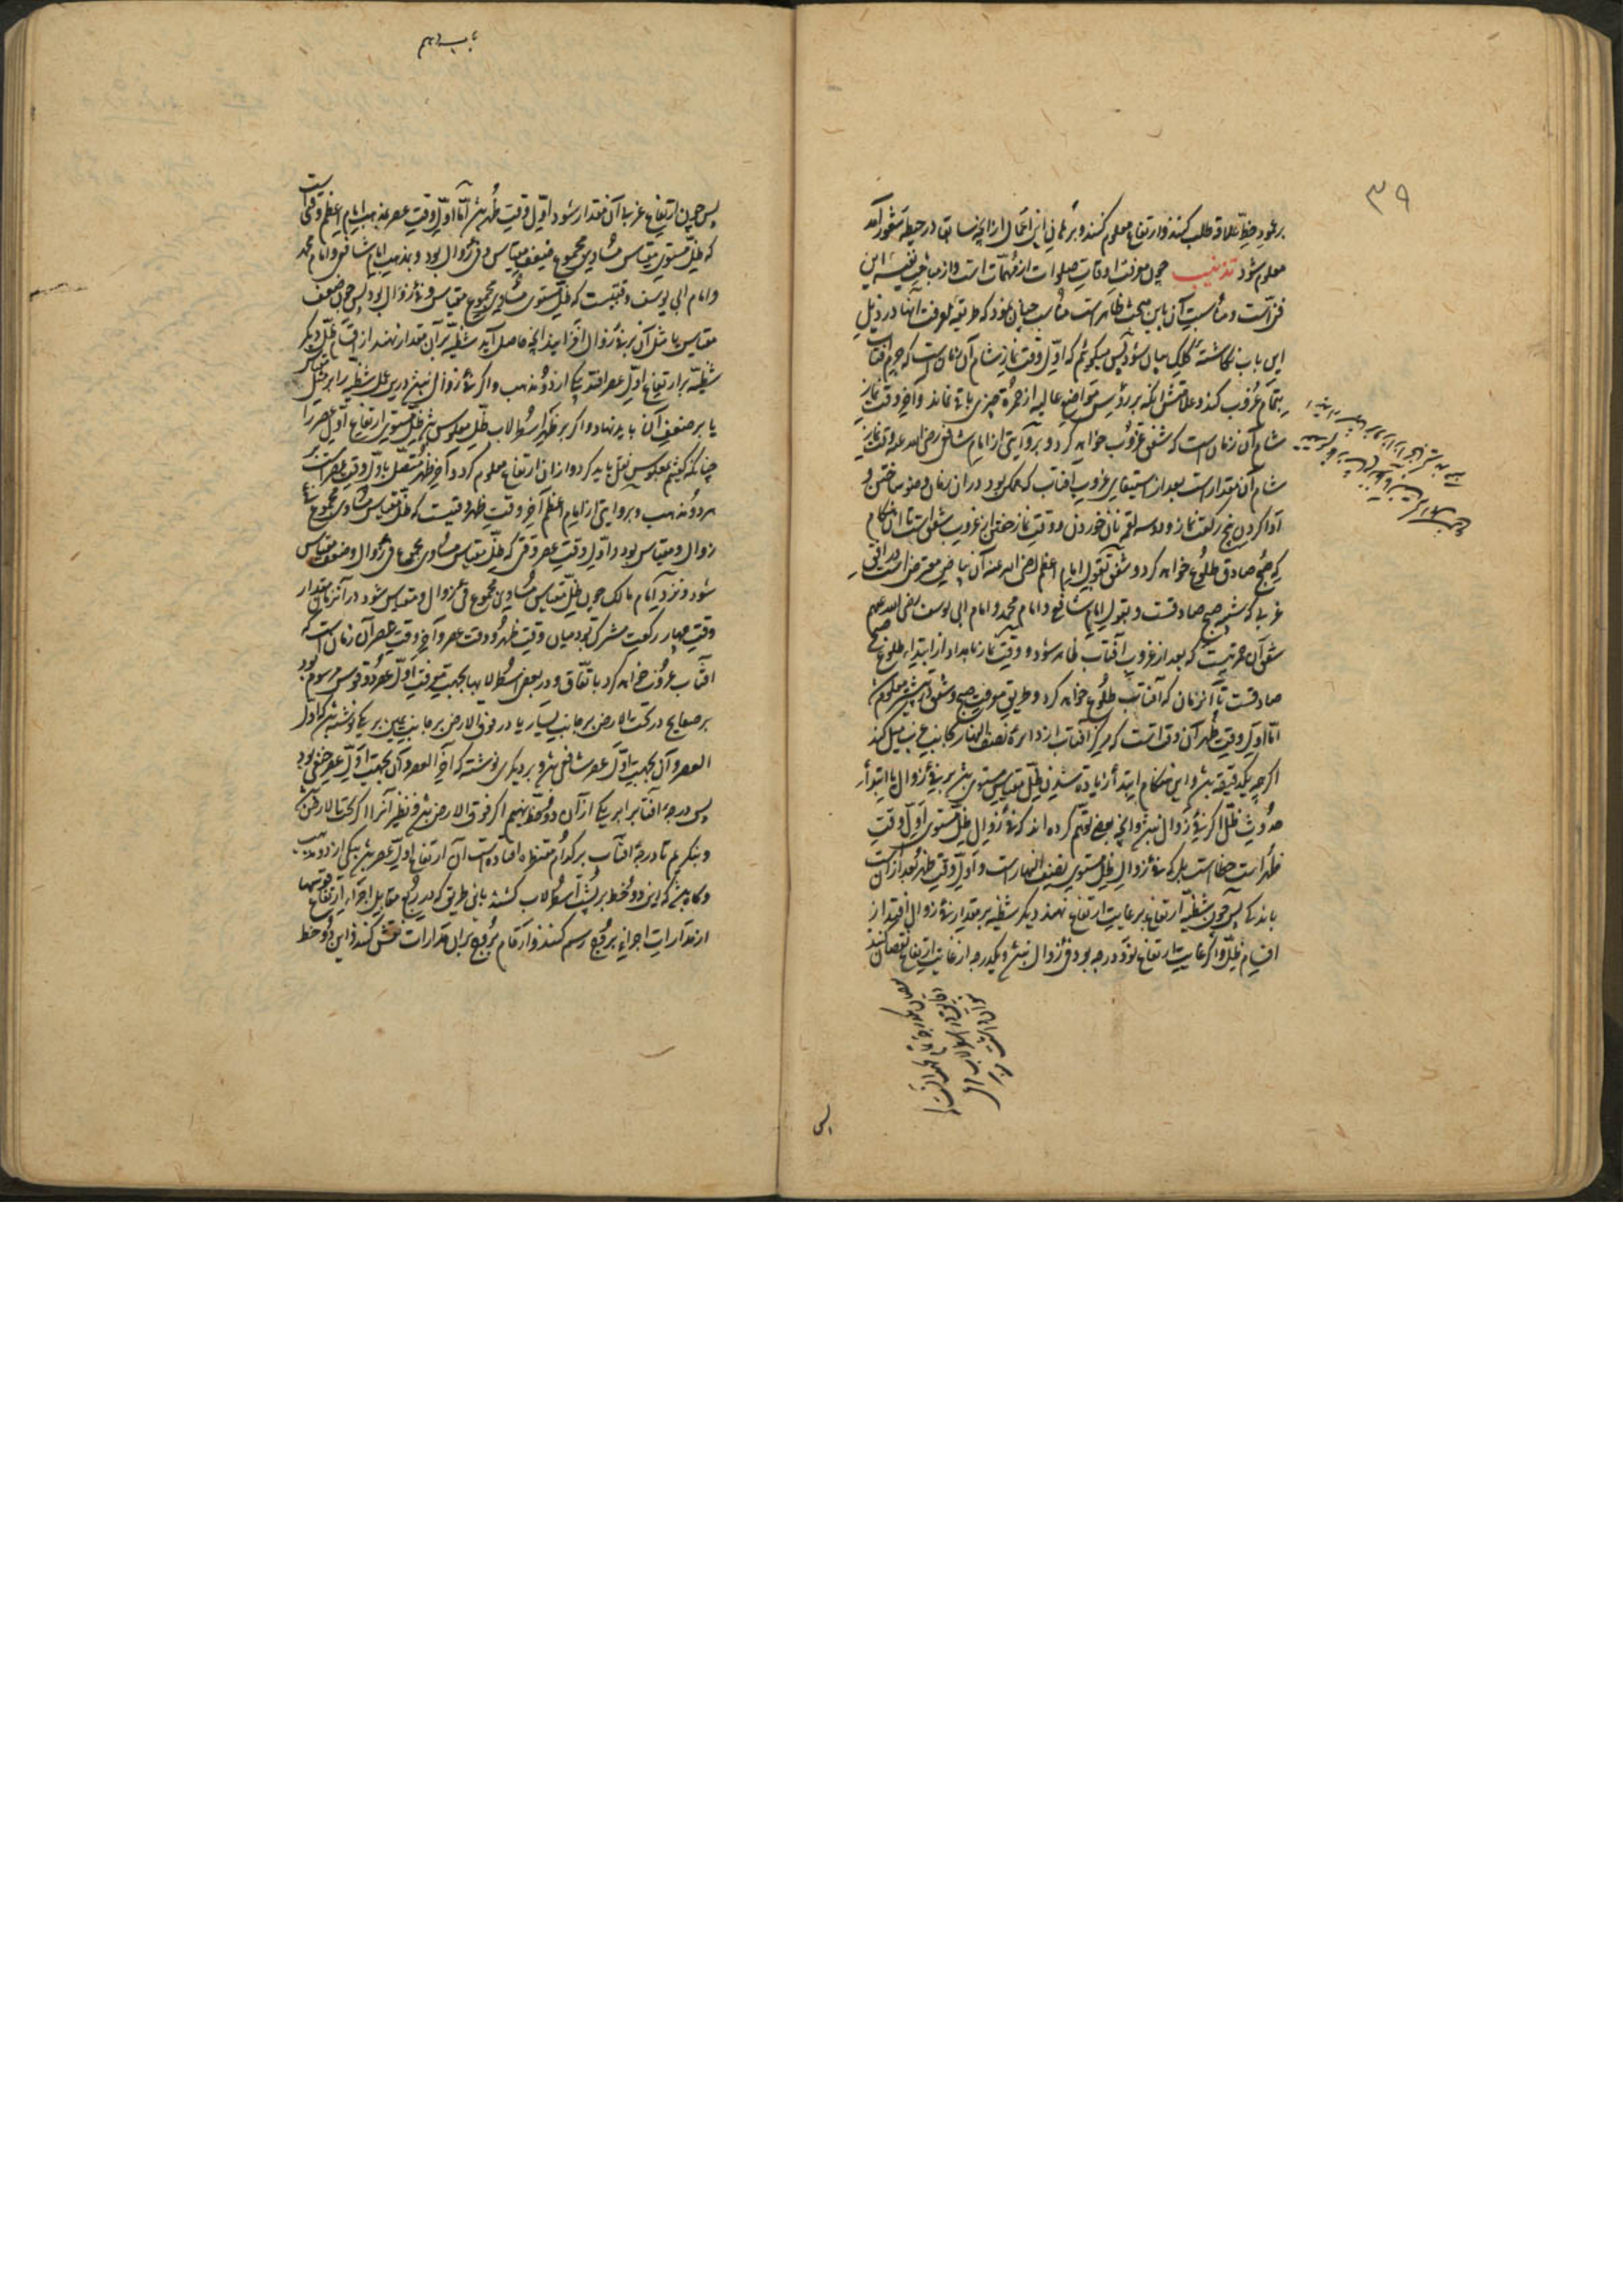 ۳۹
بر خود خط علاقه طلب کنند و ارتفاع معلوم کنند و برهان این اعمال از آنچه سابقا در حیطه شعور آمد
معلوم شود تذنیب چون معرفت اوقات صلوات از مهمات است و از مباحث نفیسه این
فن است و مناسبت آن باین مبحث ظاهر است مناسب چنان نمود که طریقه معرفت آنها در ذیل
این باب نگاشته کلک بیان شود پس میگوئیم که اول وقت نماز شام آن زمان است که جرم آفتاب
بتمام غروب کند و علامتش آنکه بر رؤس مواضع عالیه از حمرة چیزی باقی نماند و آخر وقت نماز
شام آن زمان است که شفق غروب خواهد کرد و بروایتی از امام شافعی رضی الله عنه وقت نماز
شام آن مقدار است بعد از استیفای غروب آفتاب که ممکن بود در آن زمان وضو ساختن و
ادا کردن پنج رکعت نماز و دو سه لقمه نان خوردن و وقت نماز خفتن از غروب شفق است تا آن هنگام
که صبح صادق طلوع خواهد کرد و شفق بقول امام اعظم رضی الله عنه آن بیاض معترض است در افق
غربی که شبیه صبح صادقست و بقول امام شافعی و امام محمد و امام ابی یوسف رضی الله عنهم
شفق آن حمرتیست که بعد از غروب آفتاب ظاهر شود و وقت نماز بامداد از ابتداء طلوع صبح
صادقست تا آن زمان که آفتاب طلوع خواهد کرد و طریق معرفت صبح و شفق از پیشتر معلوم شد
اما اول وقت ظهر آن وقت است که مرکز آفتاب از دائرة نصف النهار بجانب غرب میل کند
اگرچه یکدقیقه باشد و این هنگام ابتدأ زیاده شدن ظل مقیاس مستوی باشد بر فئ زوال یا ابتدأ
حدوث ظل اگر فئ زوال نباشد و آنچه بعضی توهم کرده اند که فئ زوال ظل مستوی اول وقت
ظهر است خطاست بلکه فئ زوال ظل مستوی نصف النهار است و اول وقت ظهر بعد از آن است
باندکی پس چون شظیه ارتفاع بر غایت ارتفاع نهند دیگر شظیه بر مقدار فئ زوال افتد از
اقسام ظل و اگر غایت ارتفاع نود درجه بود فئ زوال نباشد و یکدرجه از غایت ارتفاع نقصان کنند
پس
باب دهم
پس چون ارتفاع غربی آن مقدار شود اول وقت ظهر باشد اما اول وقت عصر بمذهب امام اعظم وقتی است
که ظل مستوی مقیاس مساوی مجموع ضعف مقیاس و فئ زوال بود و بمذهب امام شافعی و امام محمد
و امام ابی یوسف وقتیست که ظل مستوی مساوی مجموع مقیاس و فئ زوال بود پس چون ضعف
مقیاس یا مثل آن بر فئ زوال افزایند آنچه حاصل آید شظیه بر آن مقدار نهند از اقسام ظل دیگر
شظیه بر ارتفاع اول عصر افتد بیکی از دو مذهب و اگر فئ زوال نباشد درین عمل شظیه را بر مثل مقیاس
یا بر ضعف آن باید نهاد و اگر بر ظهر اسطرلاب ظل معکوس باشد ظل مستوی ارتفاع اول عصر را
چنانکه گفتیم بمعکوس نقل باید کرد و از آن ارتفاع معلوم گردد و آخر ظهر متصل باول وقت عصر است بر
هر دو مذهب و بروایتی از امام اعظم آخر وقت ظهر وقتیست که ظل مقیاس مساوی مجموع فئ
زوال و مقیاس بود و اول وقت عصر وقتی که ظل مقیاس مساوی مجموع فئ زوال و ضعف مقیاس
شود و نزد امام مالک چون ظل مقیاس مساوی مجموع فئ زوال و مقیاس شود در آن زمان مقدار
وقت چهار رکعت مشترک بود میان وقت ظهر و وقت عصر و آخر وقت عصر آن زمان است که
آفتاب غروب خواهد کرد باتفاق و در بعض اسطرلابها بجهت معرفت اول عصر دو قوس مرسوم بود
بر صفایح در تحت الارض بر جانب یسار یا در فوق الارض بر جانب یمین بر یکی نوشته باشد که اول
العصر و آن بجهت اول عصر شافعی باشد و بر دیگری نوشته که آخر العصر و آن بجهت اول عصر حنفی بود
پس درجه آفتاب را بر یکی از آن دو خط نهیم اگر فوق الارض باشد و نظیر آنرا اگر تحت الارض باشد
و بنگریم تا درجه آفتاب بر کدام مقنطره افتاده است آن ارتفاع اول عصر باشد بیکی از دو مذهب
و گاه باشد که این دو خط بر پشت اسطرلاب کشند باین طریق که در ربع مقابل اجزاء ارتفاع قوسها
از مدارات اجزاء بروج رسم کنند و ارقام بروج بر آن مدارات نقش کنند و این دو خط